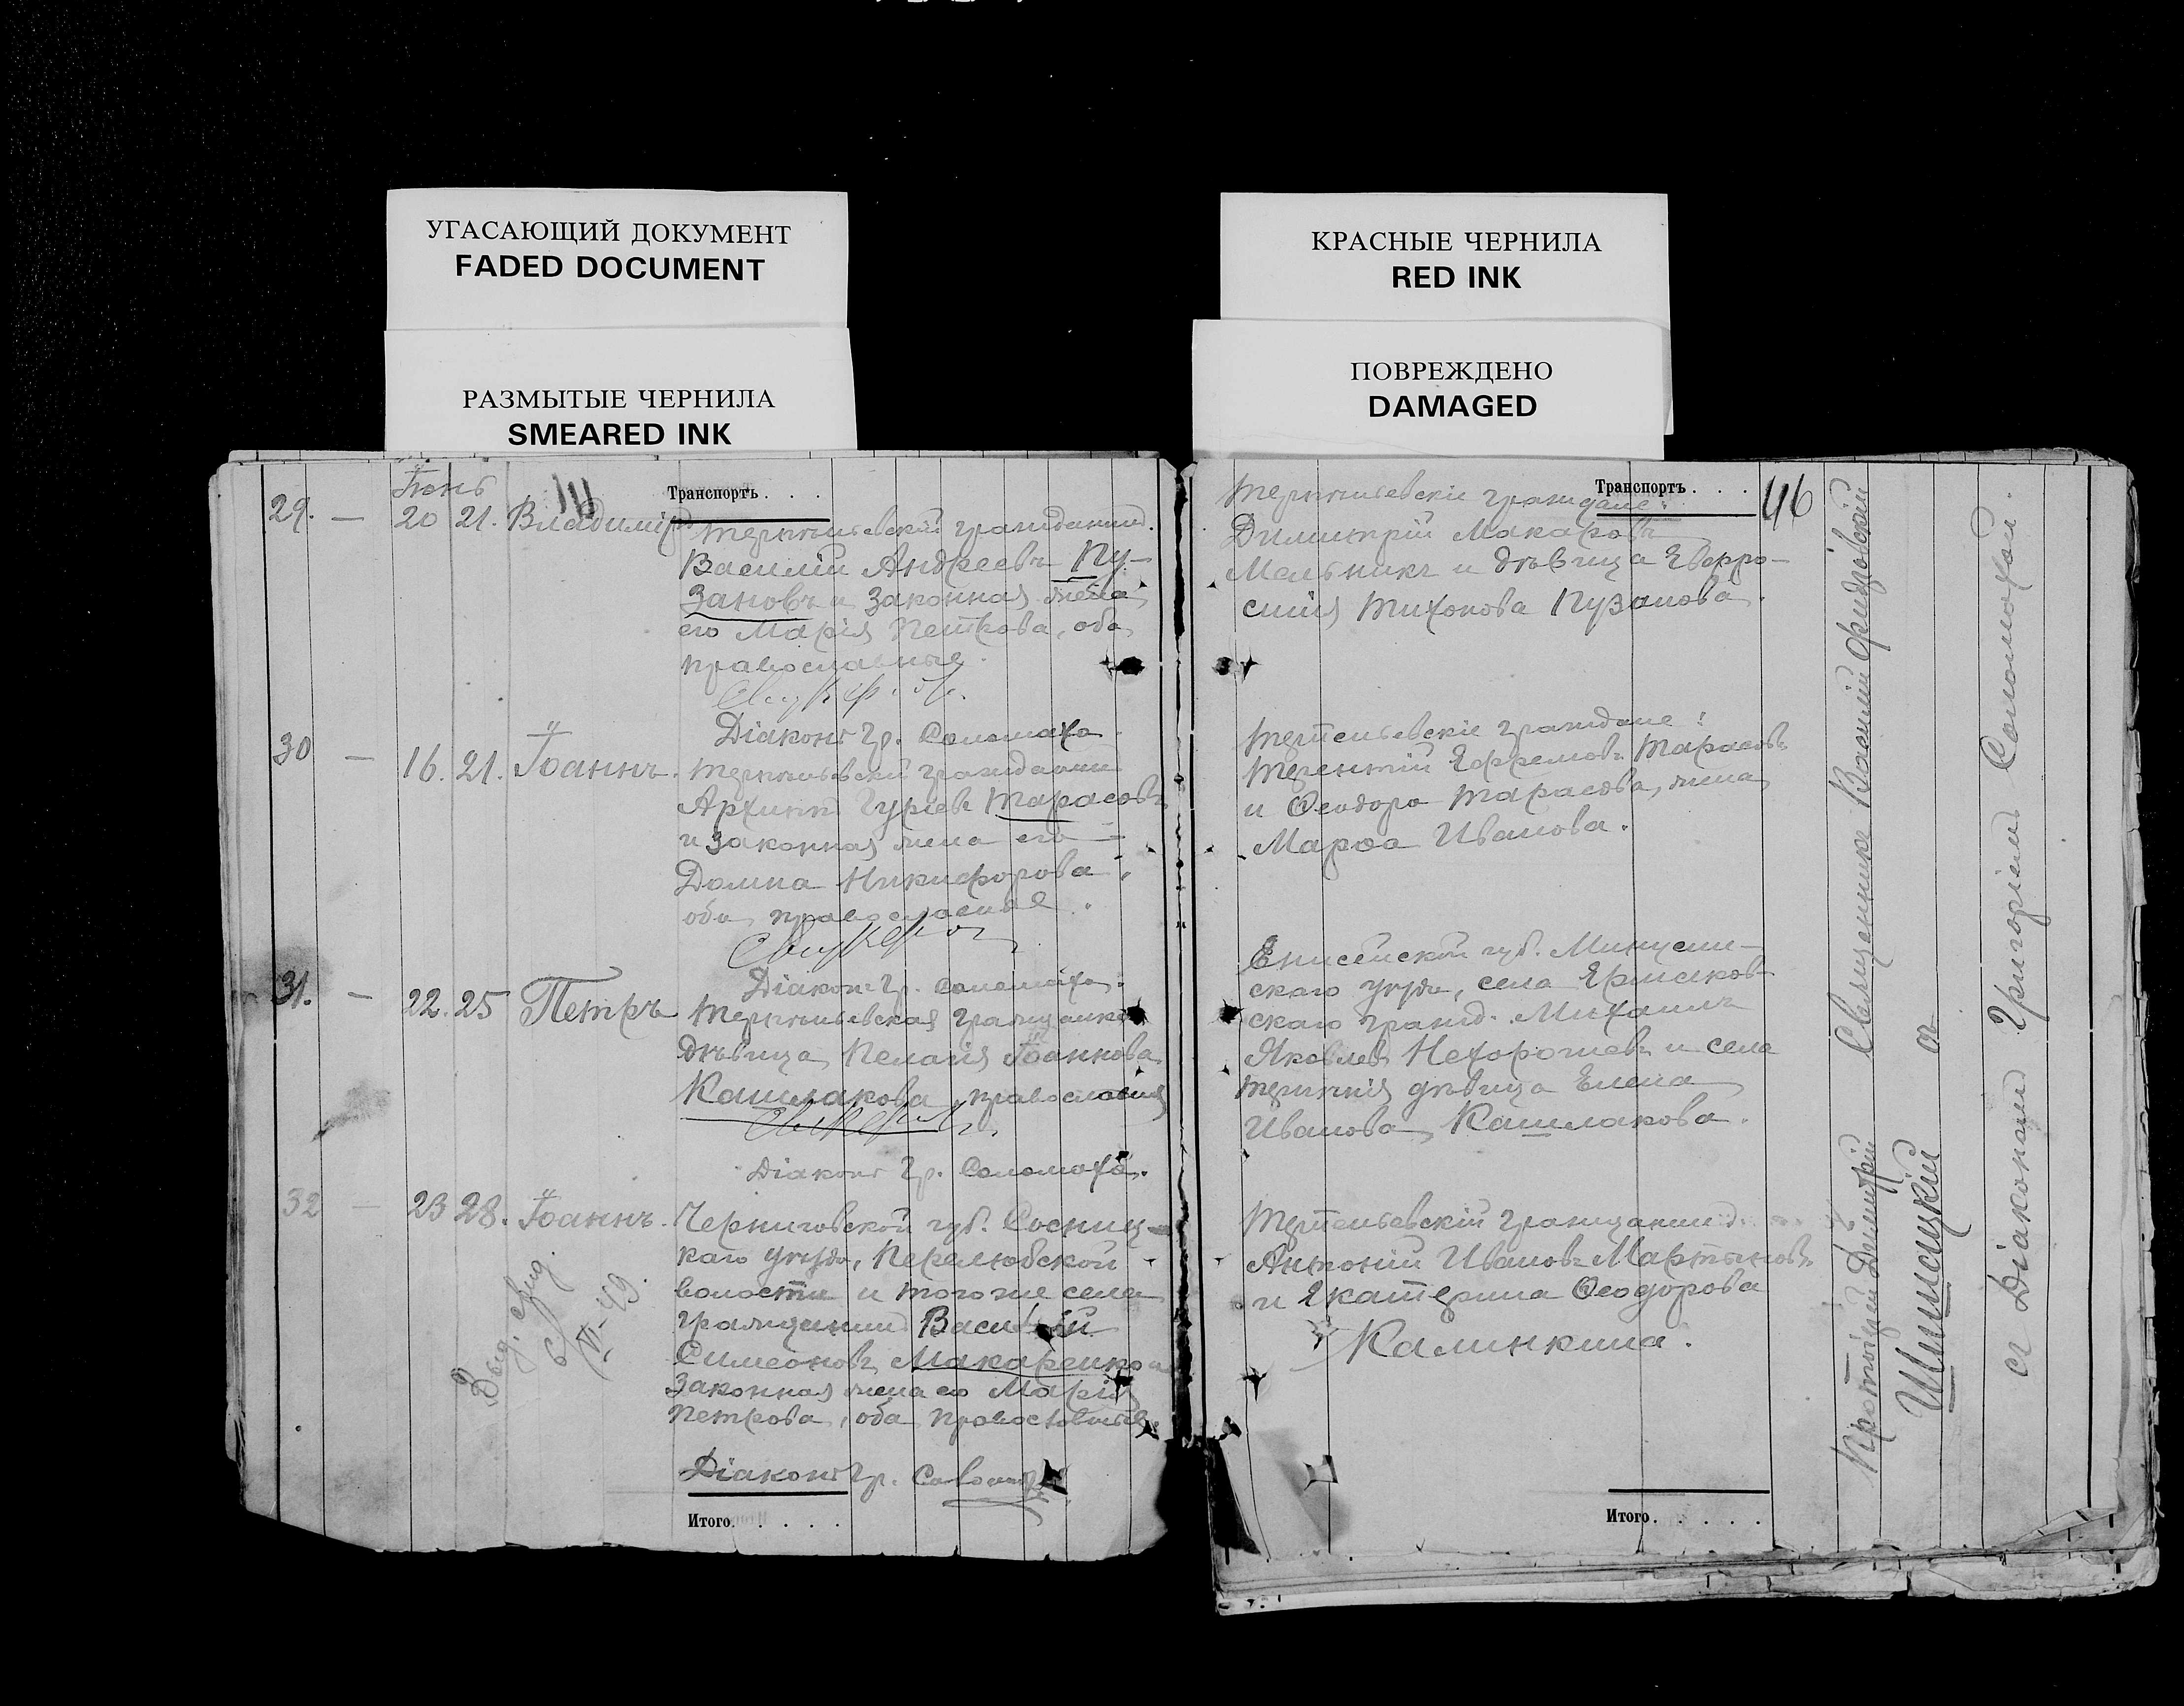 УГАСАЮЩИЙ ДОКУМЕНТ
FADED DOCUMENT
РАЗМЫТЫЕ ЧЕРНИЛА
SMEARED INK
КРАСНЫЕ ЧЕРНИЛА
RED INK
ПОВРЕЖДЕНО
DAMAGED
Іюнь
Транспортъ . . .
29. — 20 21. Владиміръ
гражданинъ
Василій Андреевъ Пу-
зановъ и законная жена
его Марія Петрова, оба
православные.
Діаконъ Гр. Соломаха.
30 — 16. 21. Іоаннъ.
гражданинъ
Архипъ Гурьевъ Тарасовъ
и законная жена его
Домна Никифорова,
оба православные.
Діаконъ Гр. Соломаха.
31. — 22. 25 Петръ
гражданка
дѣвица Пелагія Іоаннова
Кашлакова, православная
Діаконъ Гр. Соломаха.
32 — 23 28. Іоаннъ.
Черниговской губ. Сосниц-
каго уѣзда, Перелюбской
волости и того же села
гражданинъ Василій
Симеоновъ Макаренко и
законная жена его Марія
Петрова, оба православные.
Діаконъ Гр. Соломаха
Итого. . . . .
Транспортъ . . .
46
граждане:
Димитрій Макаровъ
Мельникъ и дѣвица Евфро-
синія Тихонова Пузанова.
граждане:
Терентій Ефремовъ Тарасовъ
и Ѳеодора Тарасова, жена
Марѳа Иванова.
Енисейской губ. Минусин-
скаго уѣзда, села Ермаков-
скаго гражд. Михаилъ
Яковлевъ Нехорошевъ и села
дѣвица Елена
Иванова Кашлакова.
гражданинъ
Антоній Ивановъ Мартыновъ
и Екатерина Ѳеодорова
Калинкина.
Священникъ Василій
Протоіерей Димитрій
съ Діакономъ Григоріемъ Соломахой.
Итого. . . . .